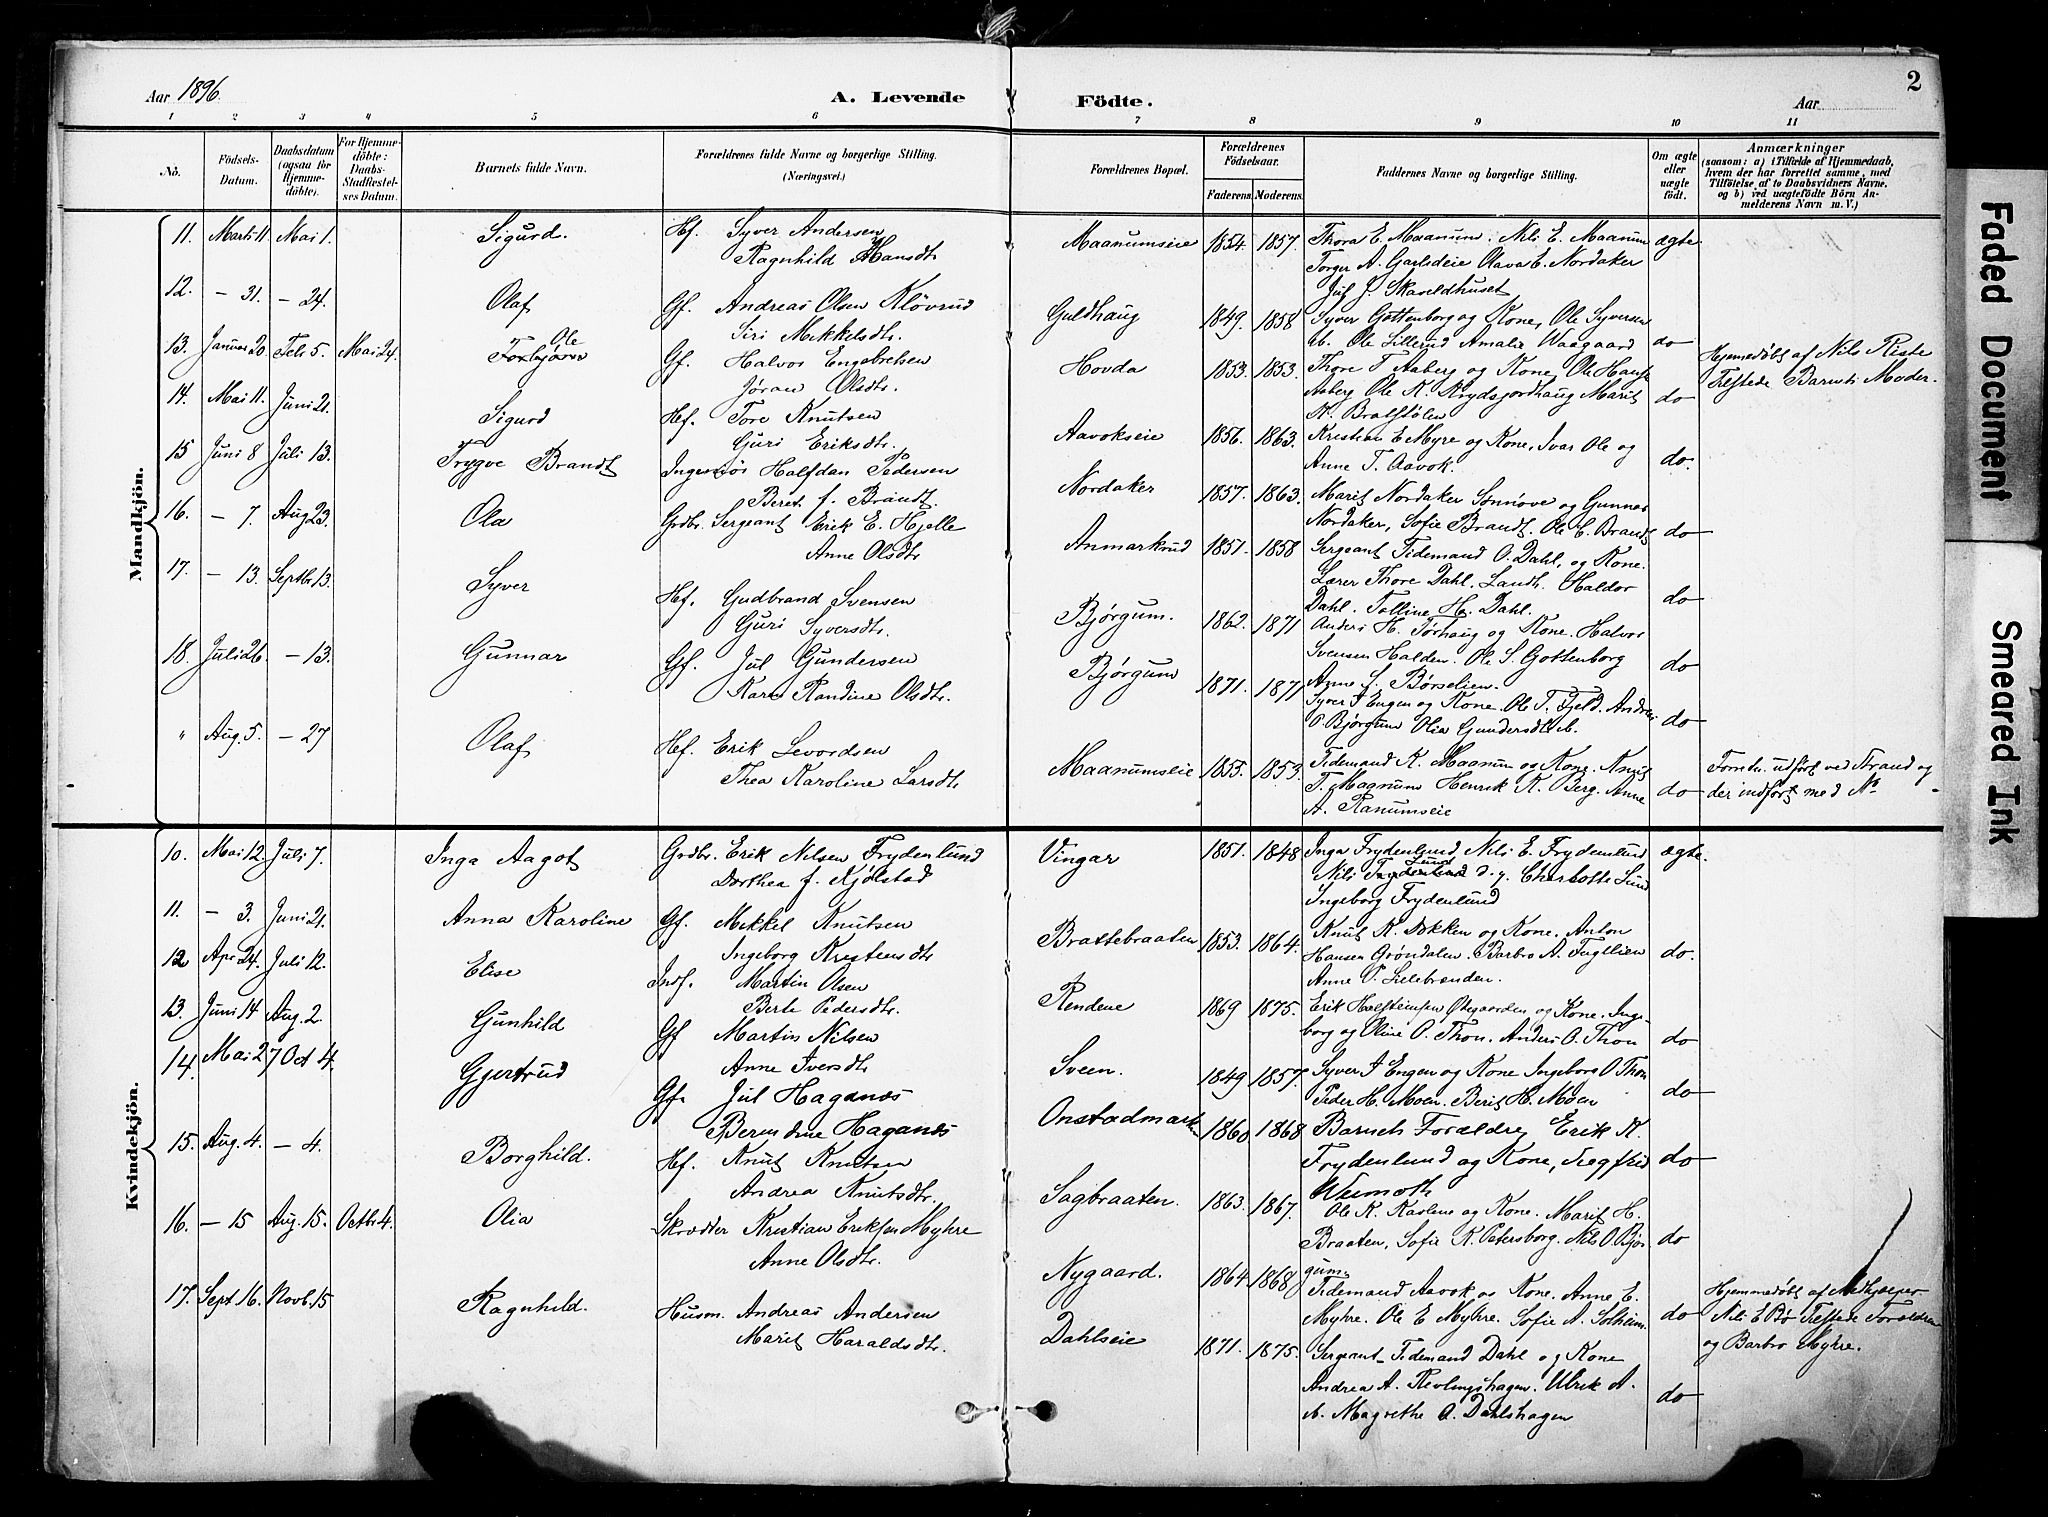 Aar 1896. A. Levende Födte. Aar 2
1 2 3 4 5 6 7 8 9 10 11
No. Födsels-Datum. Daabsdatum (ogsaa for Hjemmedöbte). For Hjemmedöbte: Daabs-Stadfæstelses Datum. Barnets fulde Navn. Forældrenes fulde Navne og borgerlige Stilling. (Næringsvei.) Forældrenes Bopæl. Forældrenes Födselsaar. Faderens. Moderens. Faddernes Navne og borgerlige Stilling. Om ægte eller uægte födt. Anmærkninger (saasom: a) i Tilfælde af Hjemmedaab, hvem der har forrettet samme, med Tilföielse af to Daabsvidners Navne, og b) ved uægtefödte Börn Anmelderens Navn m. V.)
Mandkjön.
11. Marts 11. Mai 1. Sigurd. Hf. Syver Andersen Maanumseie 1854. 1857. Thora E. Maanum. Nils E. Maanum ægte
Ragnhild Hansdtr. Torger A. Garlideie Olava E. Nordaker
Jul J. Skaveldhuset
12. – 31. – 24. Olaf Gf. Andreas Olsen Kløvrud Guldhaug 1849. 1858 Syver Gottenborg og Kone, Ole Syversen do
Siri Mikkelsdtr. ib. Ole Lillerud Amalie Waagaard
13. Januar 20. Feb 5. Mai 24. Ole Torbjørn Gf. Halvor Engebretsen Hovda 1853. 1853. Thore T. Aaberg og Kone, Ole Hans. do Hjemmedøbt af Nils Riste
Jøran Olsdtr. Aaberg Ole K. Marit Tilstede Barnets Moder.
14. Mai 11. Juni 21. Sigurd Hef. Tore Knutsen Aavokseie 1856. 1863. Kristian E Myre og Kone, Ivar Ole og do.
Guri Eriksdtr. Anne T. Aavok.
15 Juni 8 Juli 13. Trygve Brandt Ingeniør Halfdan Pedersen Nordaker 1857. 1863. Marit Nordaker Sønnøve og Gunnar do
Beret f. Brandt. Nordaker, Sofie Brandt. Ole E. Brandt
16. – 7. Aug 23. Ola Grdbr. Sergeant Erik E. Hjelle Anmarkrud 1851. 1858 Sergeant Tidemand O. Dahl, og Kone. do
Anne Olsdtr Lærer Thore Dahl. Landh. Haldor
Dahl. Tolline H. Dahl.
17. – 13. Septbr 13. Syver Hf. Gudbrand Svensen Bjørgum. 1862. 1871 Anders H. Tørhaug og Kone. Halvor do
Guri Syversdtr. Svensen Halden. Ole S. Gottenborg
Anne S. Børselien.
18. Juli 26. – 13. Gunnar Gf. Jul Gundersen Bjørgum 1871. 1871 Syver I Engen og Kone. Ole T. Fjeld. Andreas do
Karen Randine Olsdtr. O. Bjørgum Olia Gundersdtr ib.
" Aug. 5. – 27 Olaf Hef. Erik Levordsen Maanumseie 1855. 1853. Tidemand K. Maanum og Kone. Knut do Forretn. udført ved Strand og
Thea Karoline Larsdtr T. Magnum Henrik K. Berg. Anne der indført med No –
A. Ranumseie
Kvindekjön.
10. Mai 12. Juli 7. Inga Aagot Grdbr. Erik Nilsen Frydenlund Vingar 1851. 1848 Inga Frydenlund, Nils E. Frydenlund ægte.
Dorthea f. Kjølstad Nils Lund d. y. Charlotte Lund
Ingeborg Frydenlund
11. – 3. Juni 21. Anna Karoline Gf. Mikkel Knutsen Brattebraaten 1853. 1864. Knut K. Døkken og Kone. Anton do.
Ingeborg Kristensdtr Hansen Grøndalen. Barbro A. Fugllien
Anne P. Lillebrenden.
12 Apr 24. Juli 12. Elise Indf. Martin Olsen Rendene 1869 1875. Erik Halsteinsen Ødegaarden og Kone. Inge- do
Berte Pedersdtr. borg og Oline O. Thon. Anders O. Thon
13. Juni 14 Aug. 2. Gunhild Gf Martin Nilsen Sveen. 1849 1857. Syver I Engen og Kone Ingeborg O Thon do
Anne Iversdtr Peder H. Moen. Berit H. Moen
14. Mai 27 Oct 4. Gjertrud Gf. Jul Haganæs Onstadmarken 1860 1868 Barnets Forældre, Erik K. do
Berendine Haganæs Frydenlund og Kone, Siegfrid
Weimoth
15. Aug. 4. – 4. Borghild. Hf. Knut Knutsen Sagbraaten. 1863. 1867. Ole K. Kaslene og Kone. Marit H. do
Andrea Knutsdtr. Braaten, Sofie K. Petersborg. Nils O Bjør
gum.
16. – 15 Aug. 15. Octbr 4. Olia Skrædder Kristian Eriksen Myhre Nygaard. 1864. 1868 Tidemand Aavok og Kone. Anne E. do Hjemmedøbt af Medhjælper
Anne Olsdtr. Myhre. Ole E Myhre. Sofie A. Solheim. Nils E Bø Tilstede Forældrene
og Barbro Myhre.
17. Sept 16. Novb. 15 Ragnhild. Husm. Andreas Andersen Dahlseie 1871. 1875. Sergeant Tidemand Dahl og Kone do
Marit Haraldsdtr. Andrea A. Revlingshagen. Ulrik A.
ib. Magrethe A. Dahlshagen
Faded Document
Smeared Ink